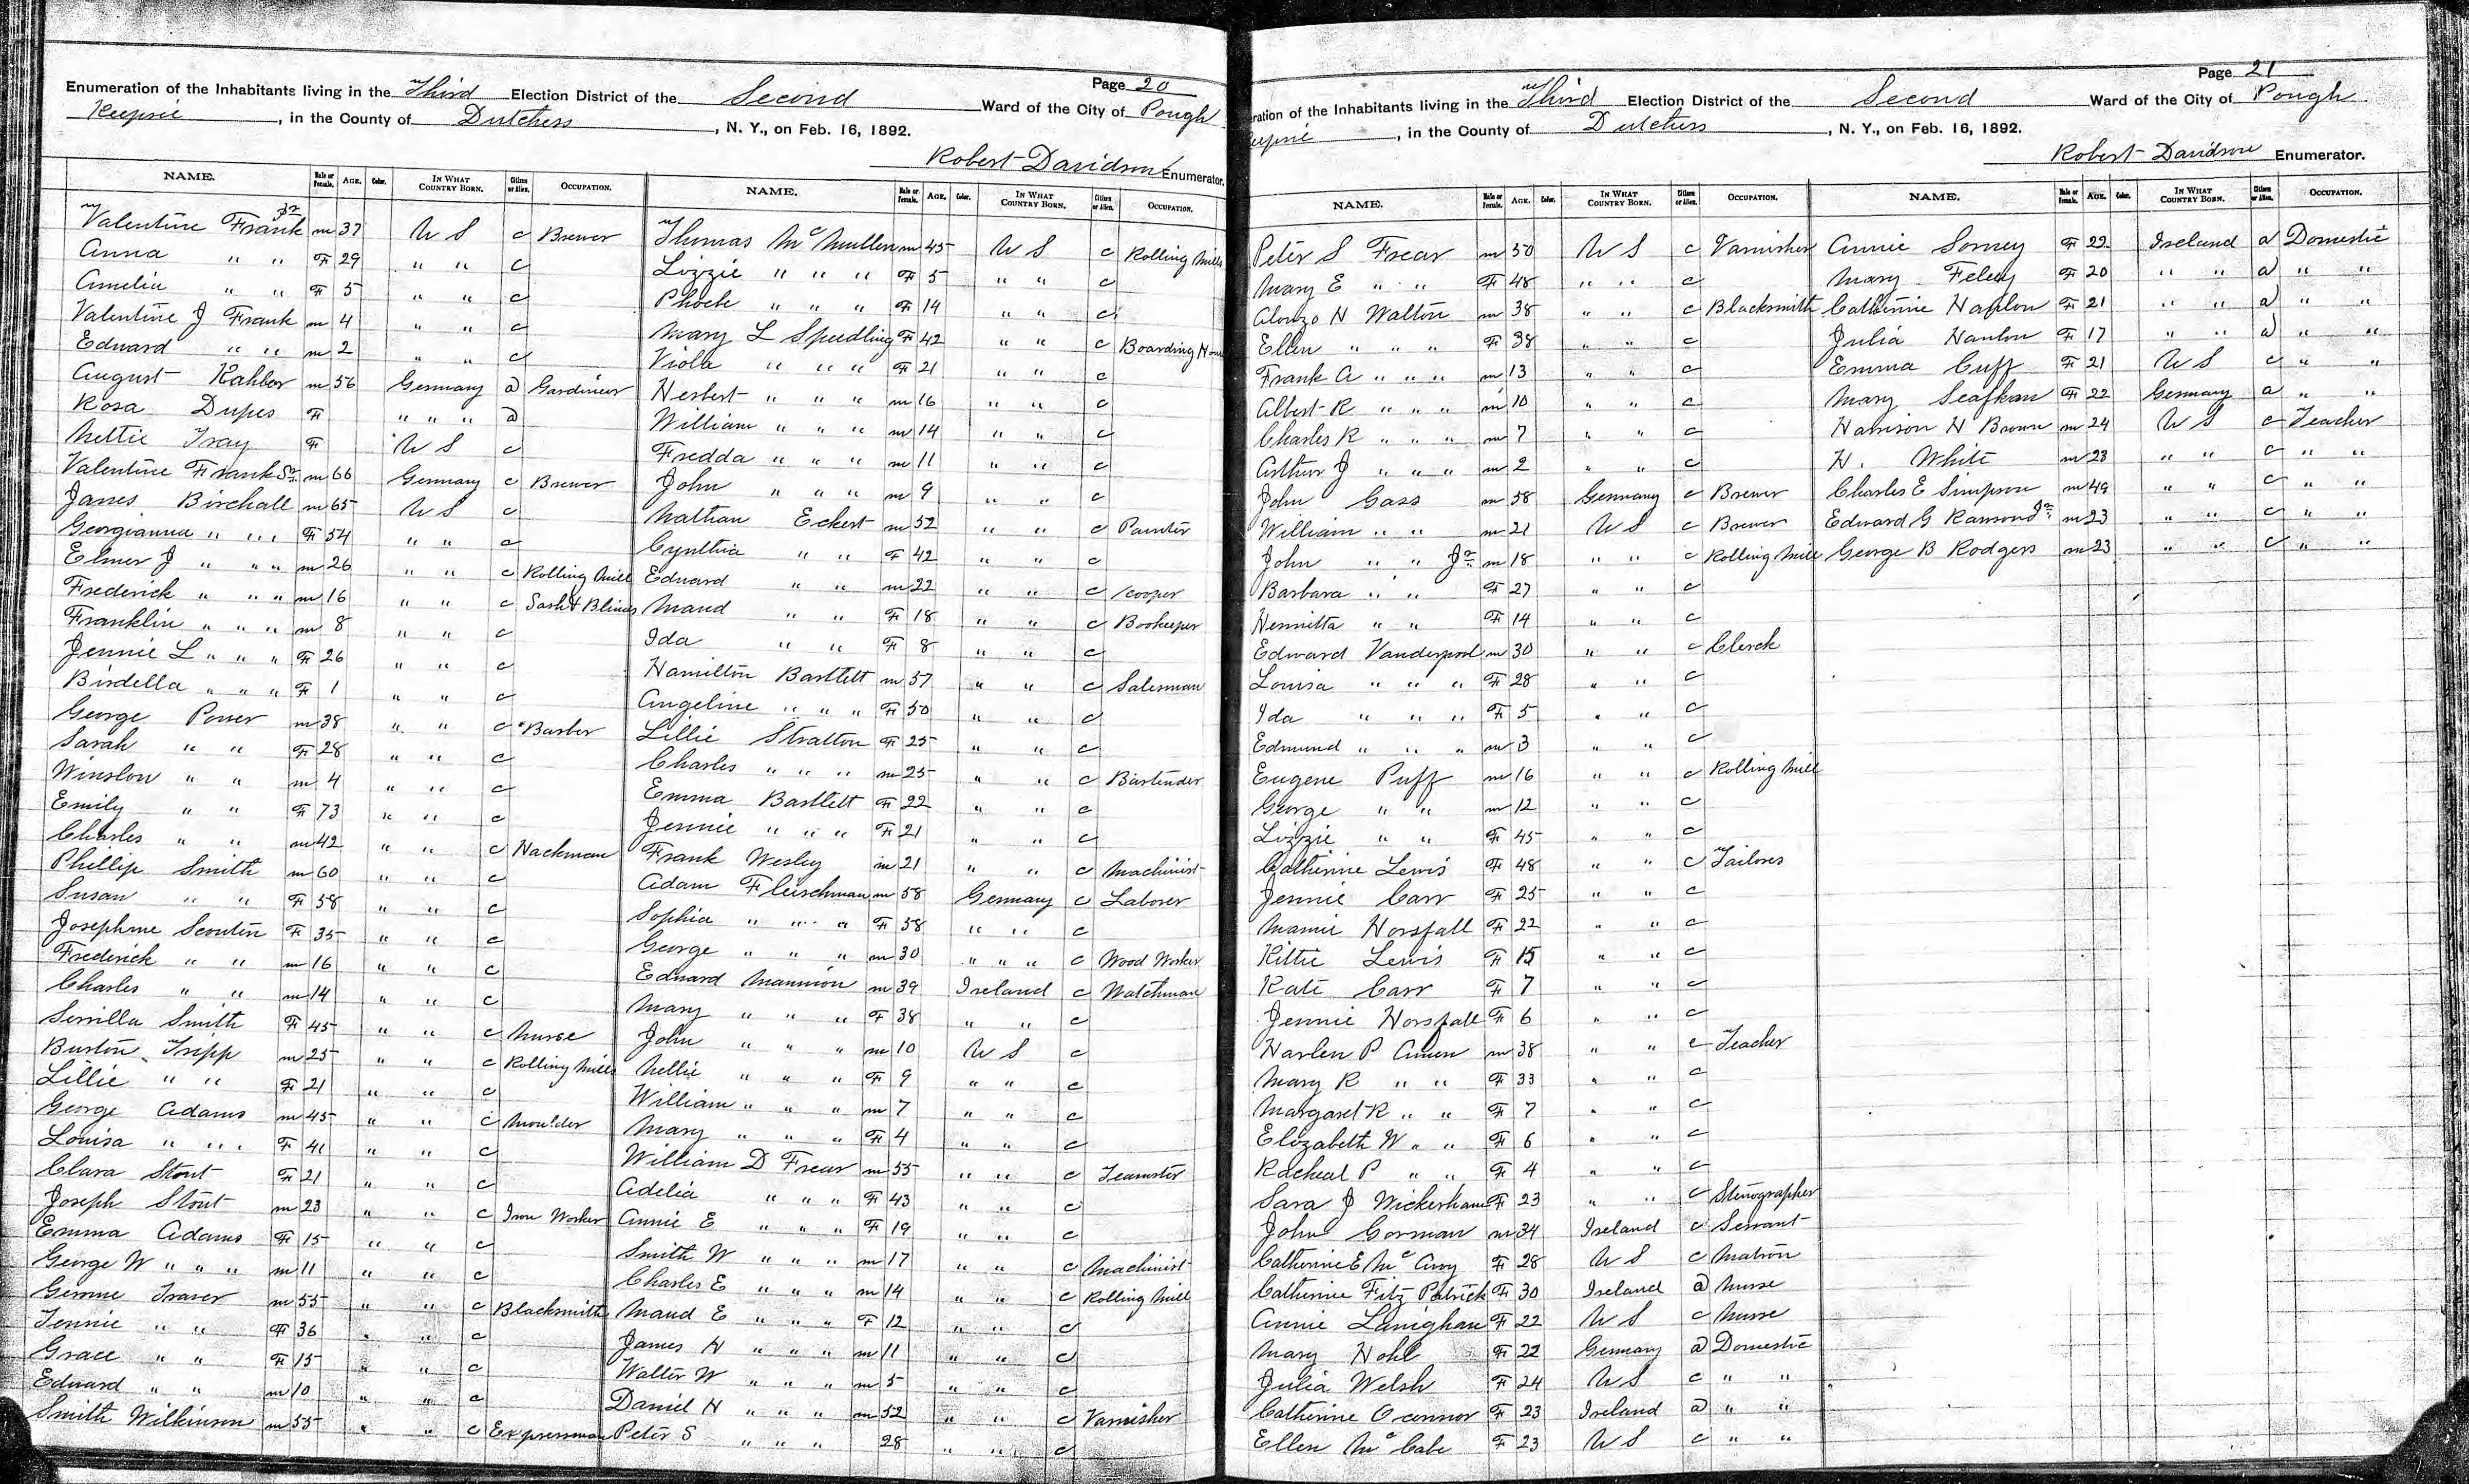 Page 20
Enumeration of the Inhabitants living in the Third Election District of the Second Ward of the City of Pough
Keepsie, in the County of Dutchess, N. Y., on Feb. 16, 1892.
Robert Davidson Enumerator.
NAME. Male or Female. AGE. Color. IN WHAT COUNTRY BORN. Citizen or Alien. OCCUPATION.
Valentine Frank Jr m 37 U S c Brewer
Anna " " F 29 " " c
Amelia " " F 5 " " c
Valentine J Frank m 4 " " c
Edward " " m 2 " " c
August Kahber m 56 Germany a Gardinier
Rosa Dupes F " " " a
Nettie Tray F U S c
Valentine Frank Sr m 66 Germany c Brewer
James Birchall m 65 U S c
Georgianna " " " F 54 " " c
Elmer J " " " m 26 " " c Rolling Mill
Frederick " " " m 16 " " c Sash & Blinds
Franklin " " " m 8 " " c
Jennie L " " " F 26 " " c
Birdella " " " F 1 " " c
George Power m 38 " " c Barber
Sarah " " F 28 " " c
Winslow " " m 4 " " c
Emily " " F 73 " " c
Charles " " m 42 " " c Hackman
Phillip Smith m 60 " " c
Susan " " F 58 " " c
Josephine Scoutin F 35 " " c
Frederick " " m 16 " " c
Charles " " m 14 " " c
Serrilla Smith F 45 " " c Nurse
Burton Tripp m 25 " " c Rolling Mill
Lillie " " F 21 " " c
George Adams m 45 " " c Moulder
Louisa " " " F 41 " " c
Clara Stout F 21 " " c
Joseph Stout m 23 " " c Iron Worker
Emma Adams F 15 " " c
George W " " " m 11 " " c
Gerome Traver m 55 " " c Blacksmith
Jennie " " F 36 " " c
Grace " " F 15 " " c
Edward " " m 10 " " c
Smith Wilkinson m 55 " " c Expressman
NAME. Male or Female. AGE. Color. IN WHAT COUNTRY BORN. Citizen or Alien. OCCUPATION.
Thomas Mc Mullen m 45 U S c Rolling Mills
Lizzie " " " F 5 " " c
Phoebe " " " F 14 " " c
Mary L Speedling F 42 " " c Boarding Hou
Viola " " " F 21 " " c
Herbert " " " m 16 " " c
William " " " m 14 " " c
Fredda " " " m 11 " " c
John " " " m 9 " " c
Nathan Eckert m 52 " " c Painter
Cynthia " " F 42 " " c
Edward " " m 22 " " c Cooper
Maud " " F 18 " " c Bookeeper
Ida " " F 8 " " c
Hamilton Bartlett m 57 " " c Salesman
Angeline " " " F 50 " " c
Lillie Stratton F 25 " " c
Charles " " " m 25 " " c Bartender
Emma Bartlett F 22 " " c
Jennie " " " F 21 " " c
Frank Wesley m 21 " " c Machinist
Adam Fleischman m 58 Germany c Laborer
Sophia " " " F 58 " " c
George " " " m 30 " " " c Wood Worker
Edward Mannion m 39 Ireland c Watchman
Mary " " " F 38 " " c
John " " " m 10 U S c
Nellie " " " F 9 " " c
William " " " m 7 " " c
Mary " " " F 4 " " c
William D Frear m 55 " " c Teamster
Adelia " " " F 43 " " c
Annie E " " " F 19 " " c
Smith W " " " m 17 " " c Machinist
Charles E " " " m 14 " " c Rolling Mill
Maud E " " " F 12 " " c
James H " " " m 11 " " c
Walter W " " " m 5 " " c
Daniel H " " " m 52 " " c Varnisher
Peter S " " " 28 " " c
Page 21
ration of the Inhabitants living in the Third Election District of the Second Ward of the City of Pough
Kepsie, in the County of Dutchess, N. Y., on Feb. 16, 1892.
Robert Davidson Enumerator.
NAME. Male or Female. AGE. Color. IN WHAT COUNTRY BORN. Citizen or Alien. OCCUPATION.
Peter S Frear m 50 U S c Varnisher
Mary E " " F 48 " " " c
Alonzo H Walton m 38 " " c Blacksmith
Ellen " " " F 38 " " c
Frank A " " " m 13 " " c
Albert R " " " m 10 " " c
Charles R " " " m 7 " " c
Arthur J " " " m 2 " " c
John Gass m 58 Germany c Brewer
William " " m 21 U S c Brewer
John " " Jr m 18 " " c Rolling Mill
Barbara " " F 27 " " c
Henrietta " " F 14 " " c
Edward Vanderpool m 30 " " c Clerck
Louisa " " " F 28 " " c
Ida " " " F 5 " " c
Edmund " " " m 3 " " c
Eugene Puff m 16 " " c Rolling Mill
George " " m 12 " " c
Lizzie " " F 45 " " c
Catherine Lewis F 48 " " c Tailores
Jennie Carr F 25 " " c
Mamie Horsfall F 22 " " c
Kittie Lewis F 15 " " c
Kate Carr F 7 " " c
Jennie Horsfall F 6 " " c
Harlen P Amen m 38 " " c Teacher
Mary R " " F 33 " " c
Margaret R " " F 7 " " c
Elizabeth W " " F 6 " " c
Racheal P " " F 4 " " c
Sara J Wickersham F 23 " " c Stenographer
John Gorman m 34 Ireland c Servant
Catherine E Mc Avoy F 28 U S c Matron
Catherine Fitz Patrick F 30 Ireland a Nurse
Annie Lanighan F 22 U S c Nurse
Mary Hohl F 22 Germany a Domestic
Julia Welsh F 24 U S c " "
Catherine O connor F 23 Ireland a " "
Ellen Mc Cabe F 23 U S c " "
NAME. Male or Female. AGE. Color. IN WHAT COUNTRY BORN. Citizen or Alien. OCCUPATION.
Annie Sorney F 22 Ireland a Domestic
Mary Feley F 20 " " a " "
Catherine Hanlon F 21 " " a " "
Julia Hanlon F 17 " " a " "
Emma Cuff F 21 U S c " "
Mary Seafkan F 22 Germany a " "
Harrison H Brown m 24 U S c Teacher
H. White m 23 " " c " "
Charles E Simpson m 49 " " c " "
Edward G Ransond Jr m 23 " " c " "
George B Rodgers m 23 " " c " "